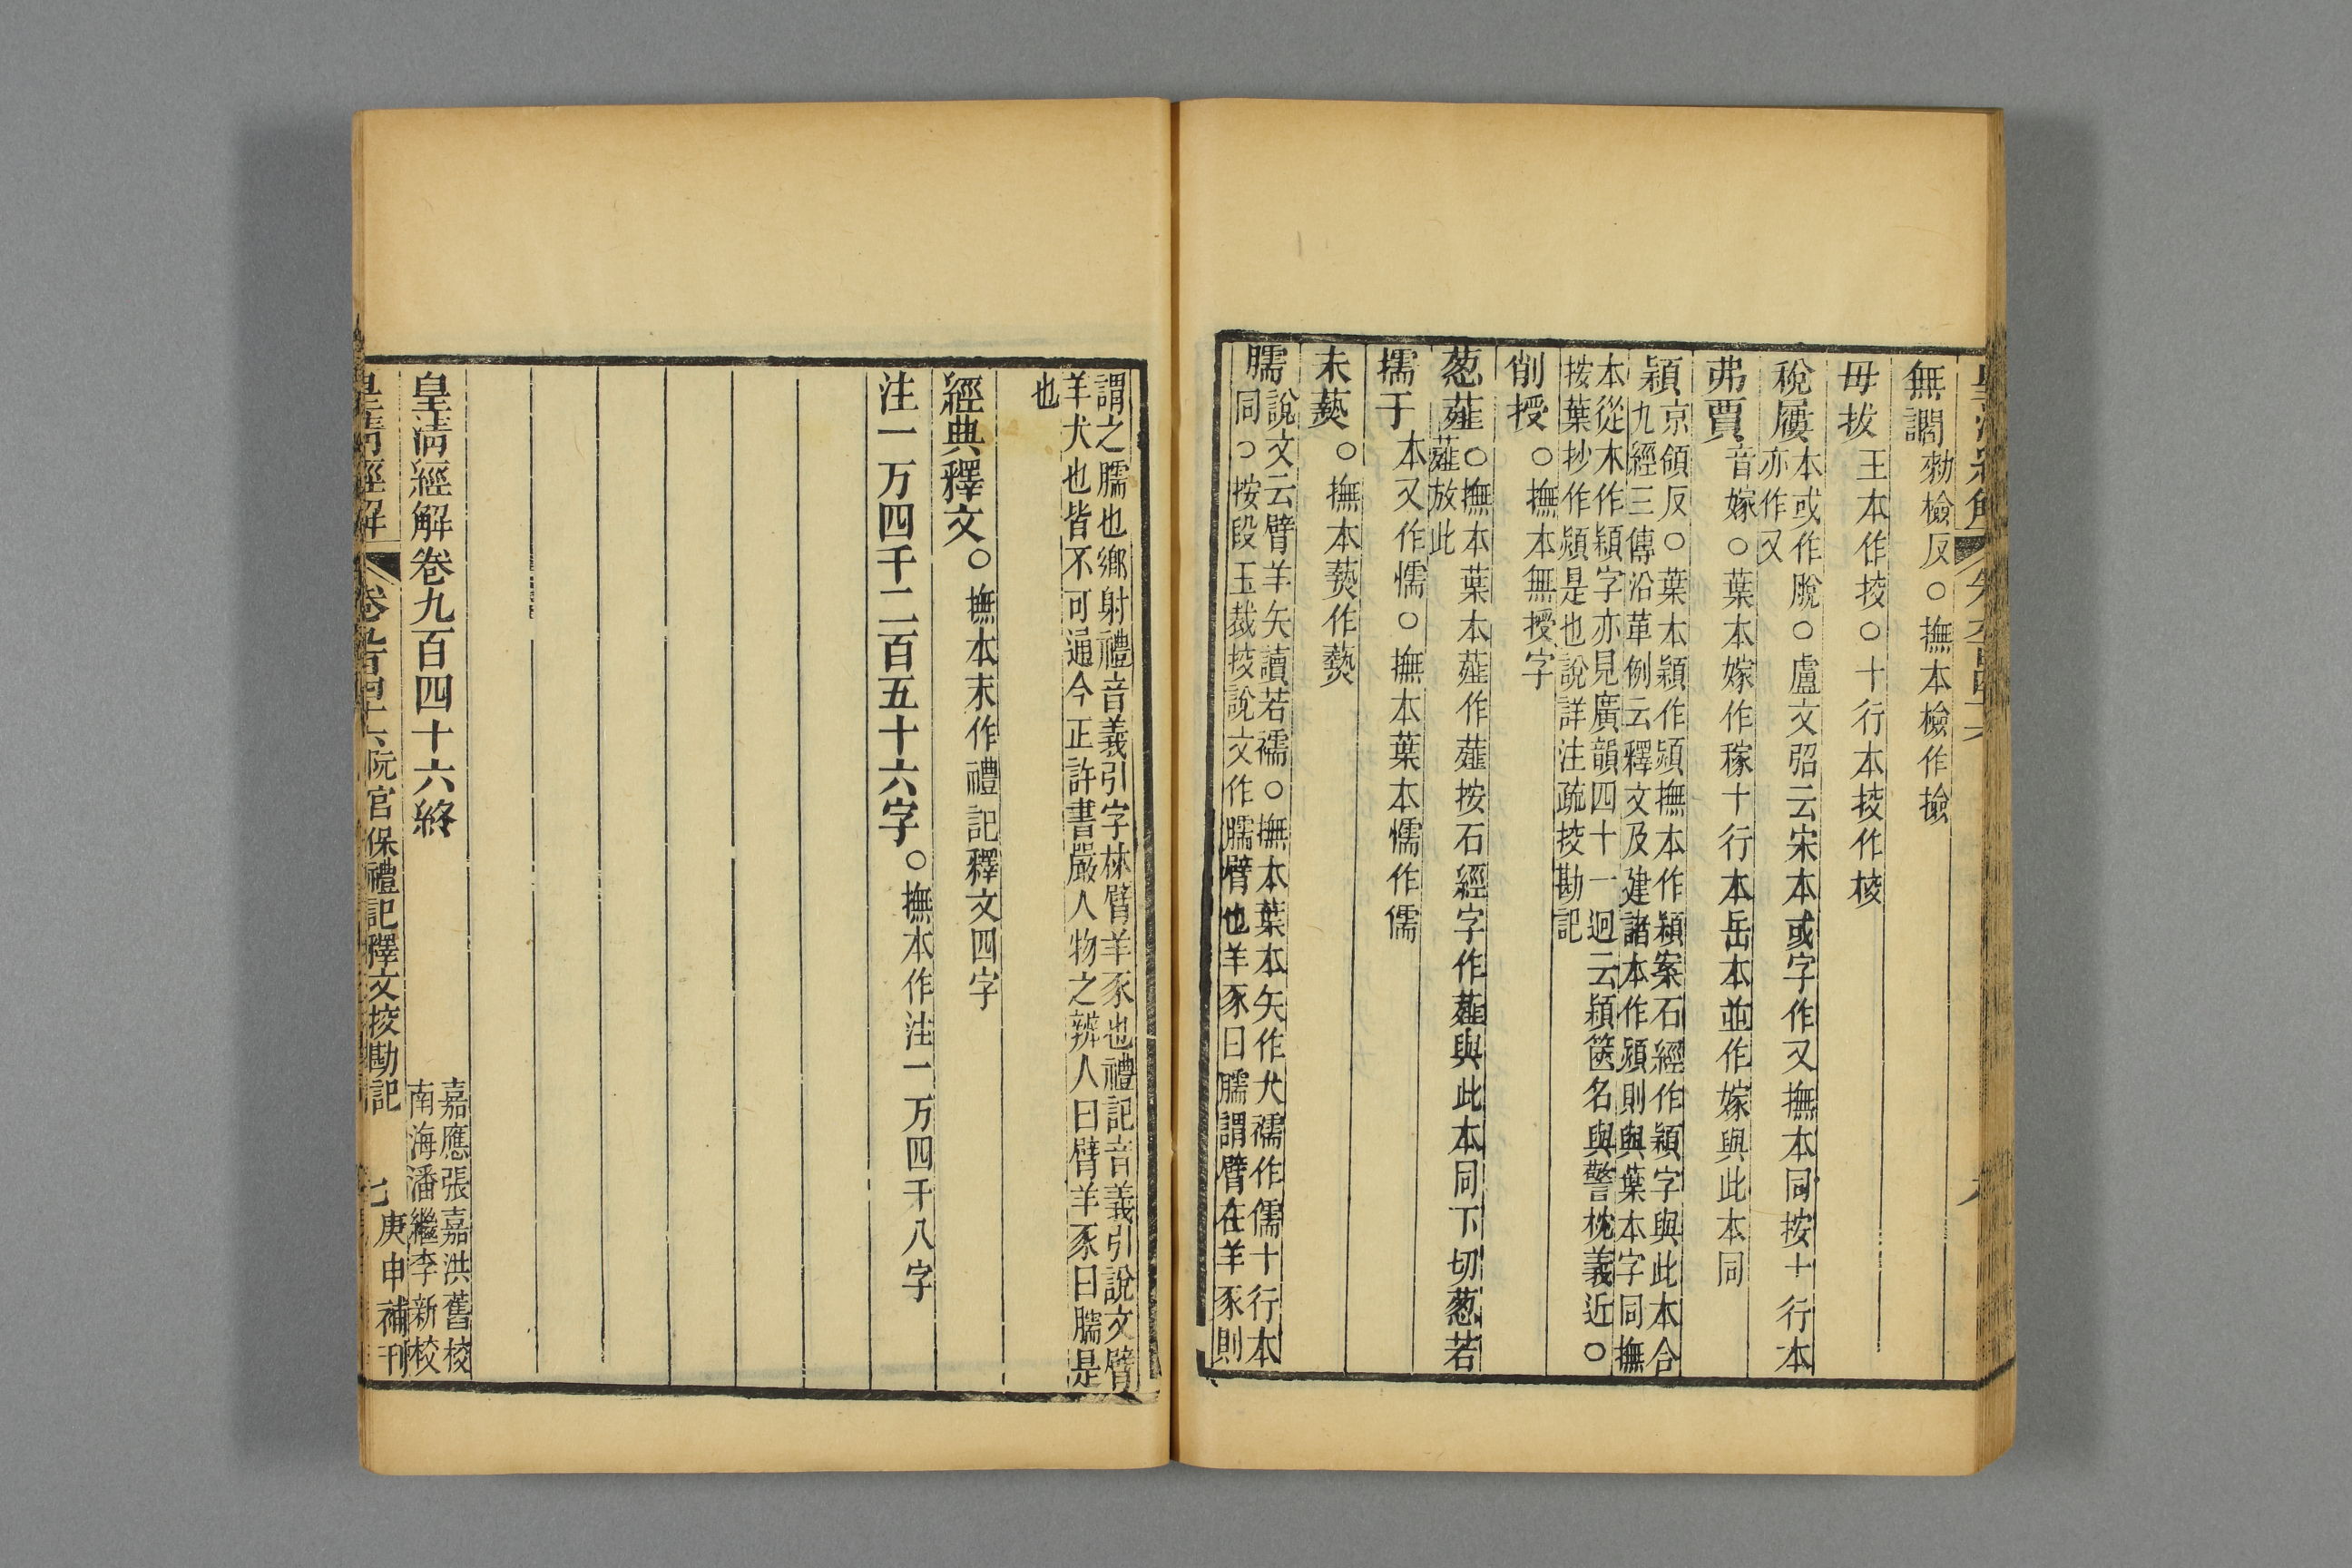 無讇勑檢反○撫本檢作撿
毋拔王本作挍○十行本挍作校
稅屨本或作脫○盧文弨云宋本或字作又撫本同按十行本
亦作又
弗賈音嫁○葉本嫁作稼十行本岳本並作嫁與此本同
穎京領反○葉本穎作熲撫本作潁案石經作穎字與此本合
九經三傳沿革例云釋文及建諸本作熲則與葉本字同撫
本從木作穎字亦見廣韻四十一迥云穎篋名與警枕義近○
按葉抄作熲是也說詳注疏挍勘記
削授○撫本無授字
葱薤○撫本葉本薤作䪥按石經字作薤與此本同下切葱若
薤放此
擩于本又作懦○撫本葉本懦作儒
未蓺○撫本蓺作藝
臑說文云臂羊矢讀若襦○撫本葉本矢作犬襦作儒十行本
同○按段玉裁挍說文作臑臂也羊豕曰臑謂臂在羊豕則
謂之臑也鄉射禮音義引字林臂羊豕也禮記音義引說文臂
羊犬也皆不可通今正許書嚴人物之辨人曰臂羊豕曰臑是
也
經典釋文○撫本末作禮記釋文四字
注一万四千二百五十六字○撫本作注一万四千八字
皇清經解卷九百四十六終
嘉應張嘉洪舊校
南海潘繼李新校
皇清經解
阮宮保禮記釋文挍勘記
七
庚申補刊